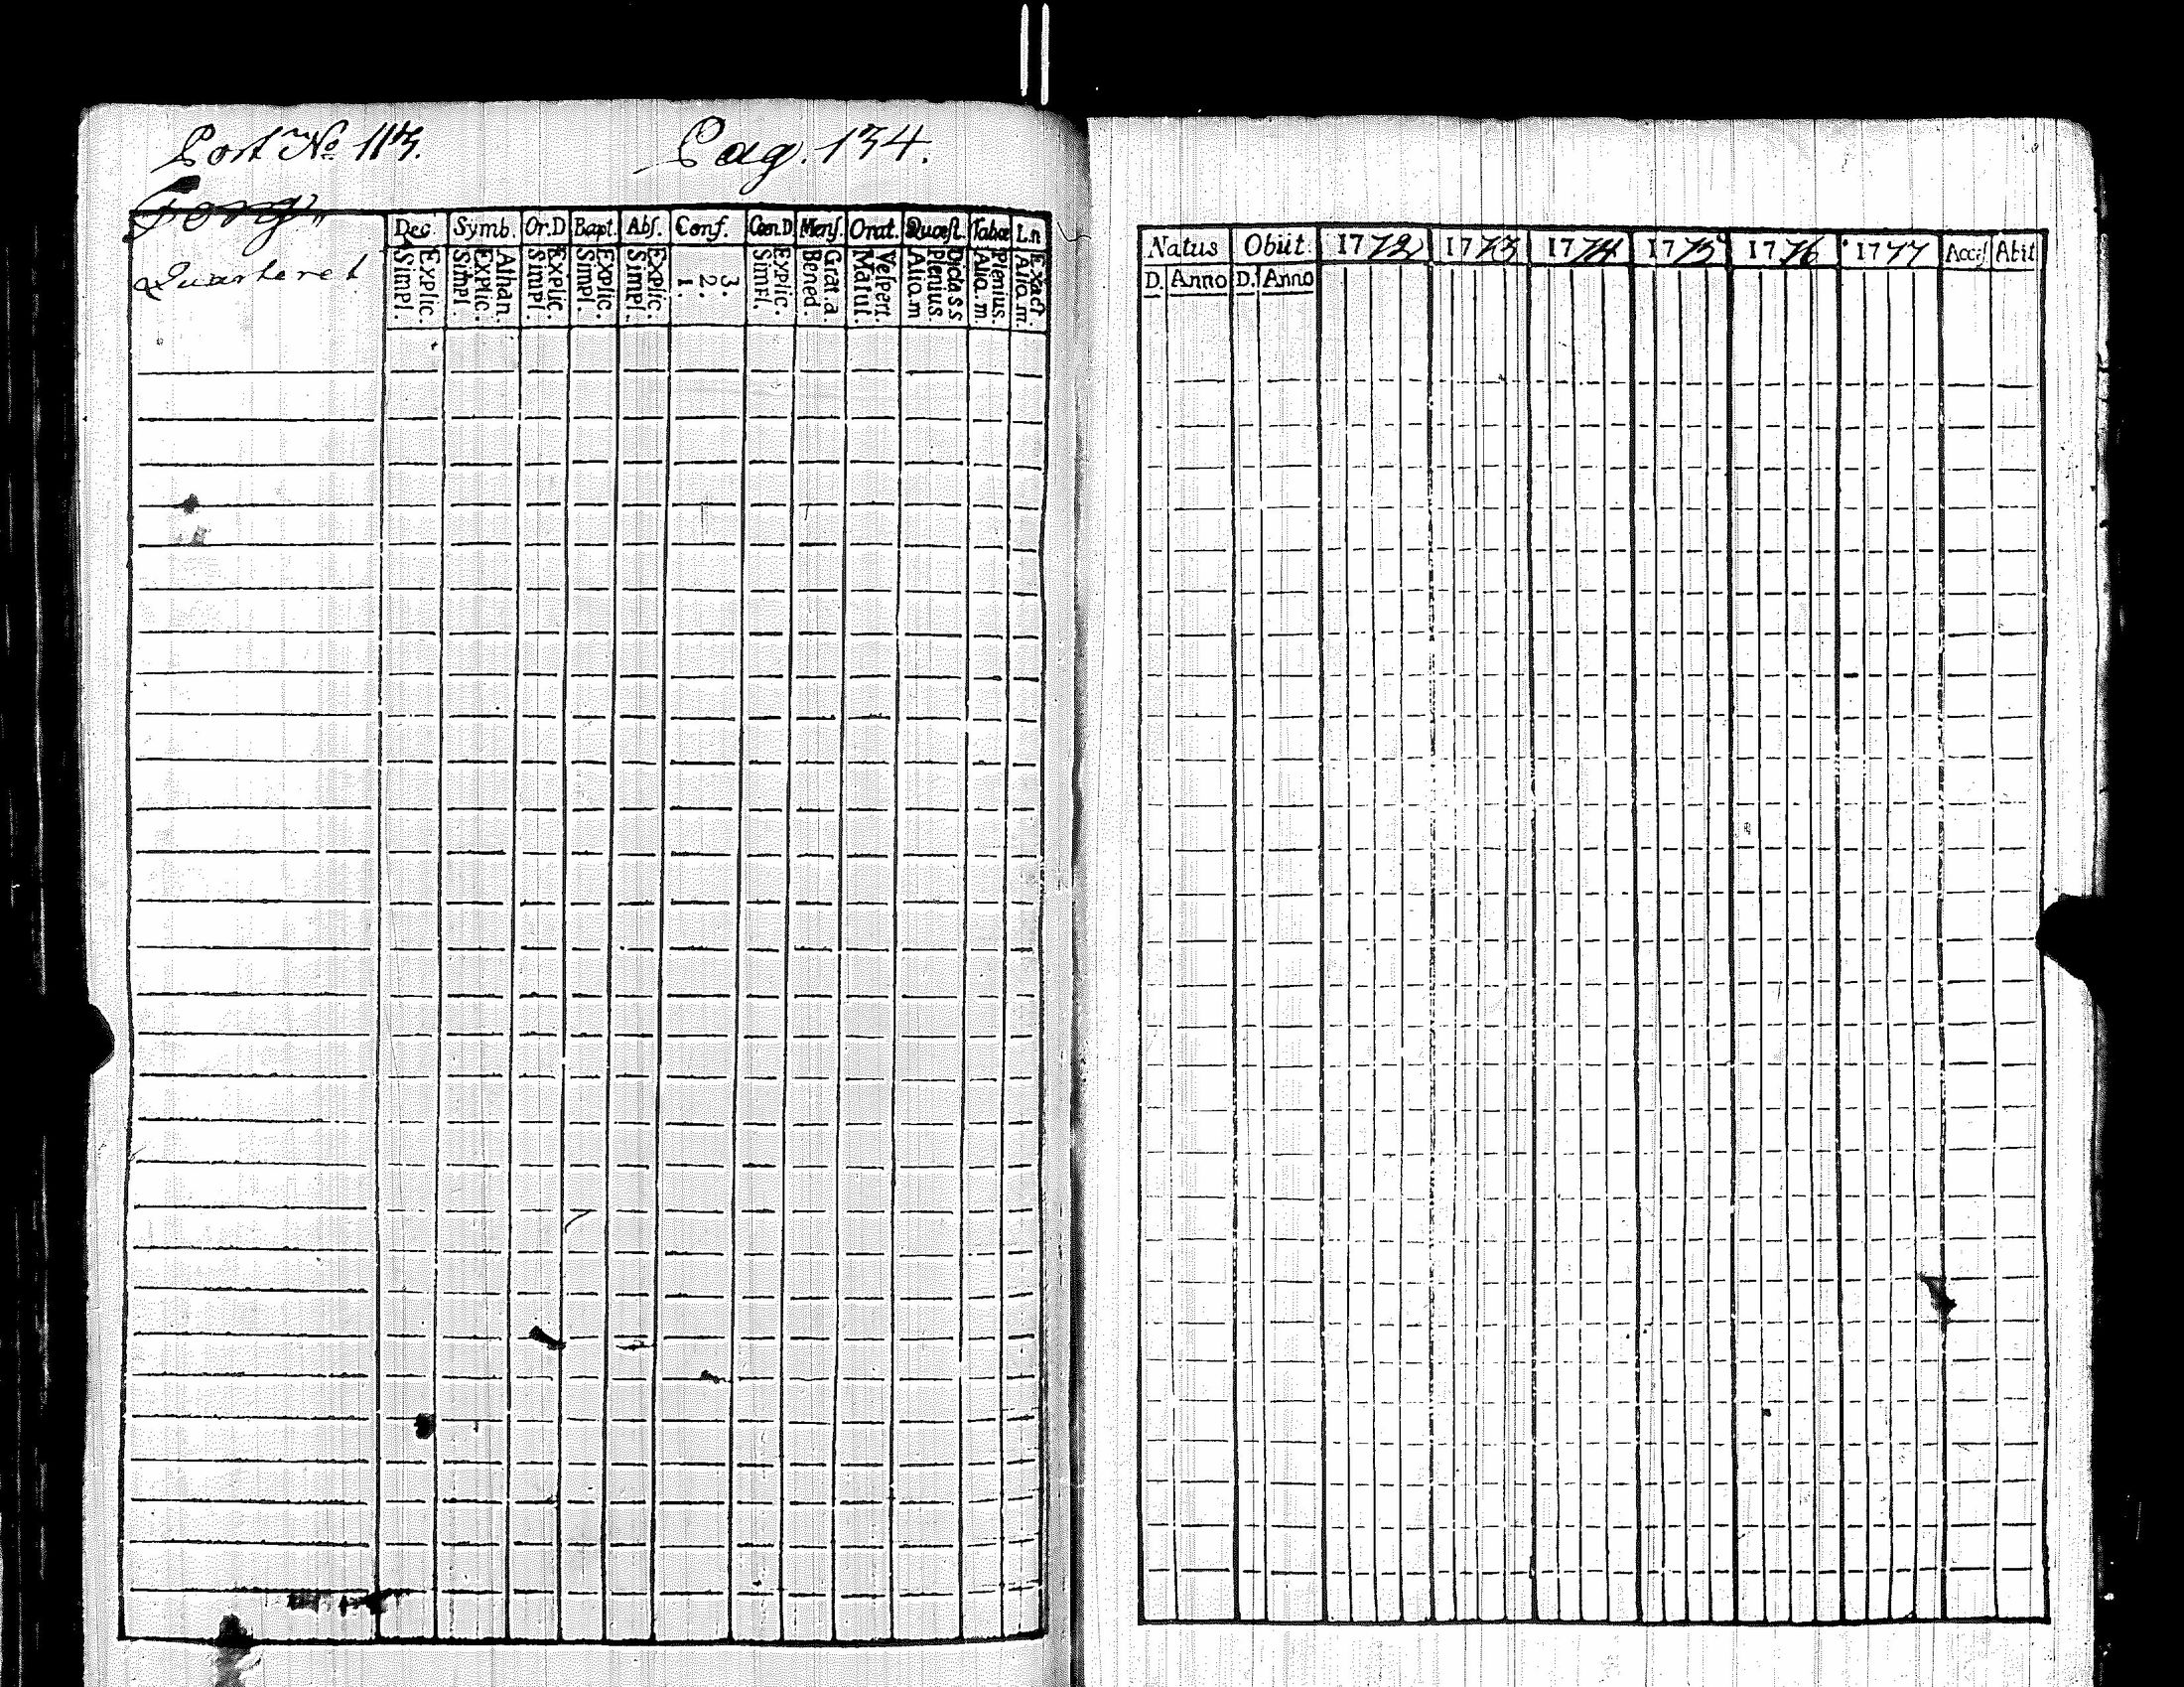 Port N° 113. Pag. 134.
Quarteret
Dec. Symb. Or.D Bapt. Abs. Conf. Cœn.D Mens. Orat. Quæst. Tabæ L.n
Explic. Simpl. Athan. Explic. Simpl. Explic. Simpl. Explic. Simpl. Explic. Simpl. 3. 2. 1. Explic. Simpl. Grat.a Bened. Vespert. Matut. Dicta s s Plenius Alio.m Plenius. Alio.m. Exact. Alio.m.
Natus Obiit. 1772 1773 1774 1775 1776 1777 Acces Abit
D. Anno D. Anno